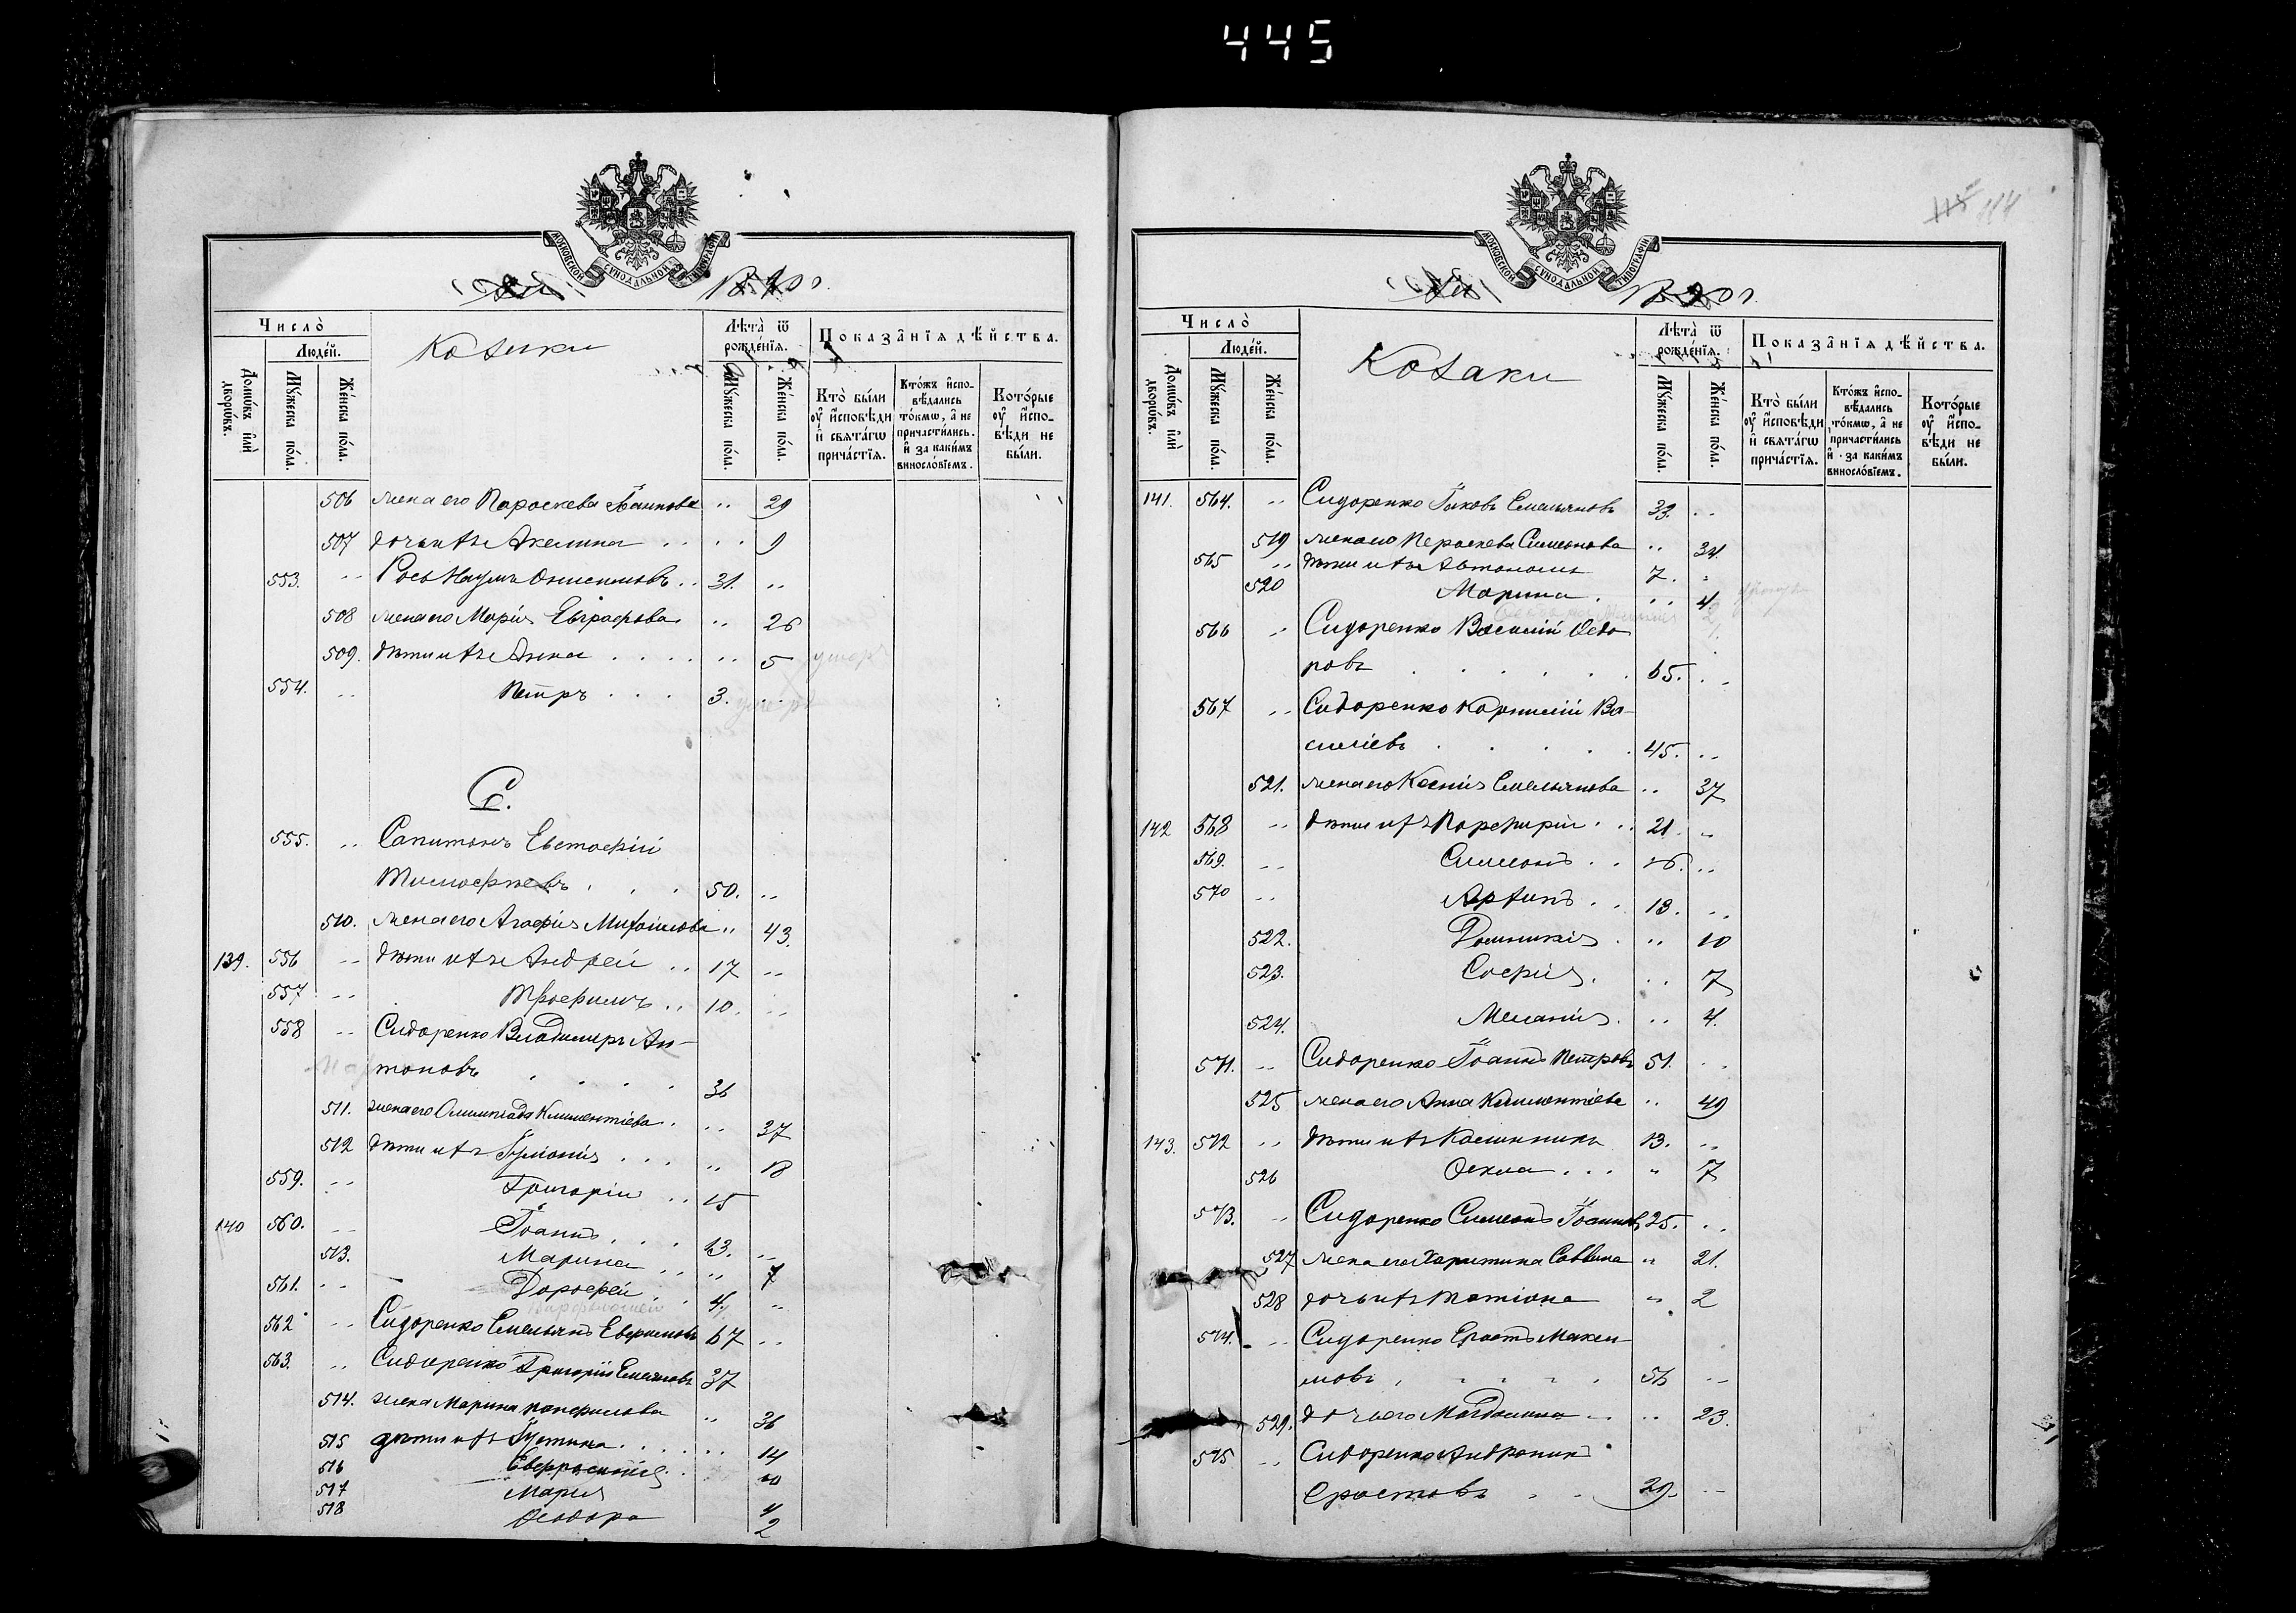 445
114
МОСКОВСКОЙ СѴНОДАЛЬНОЙ ТИПОГРАФІИ
Число̀
Люде́й.
Домѡ́въ и҆лѝ дворѡ́въ.
Мꙋ́жеска по́ла.
Же́нска по́ла.
Козаки
Лѣ́та ѿ рожде́нїѧ.
Мꙋ́жеска по́ла.
Же́нска по́ла.
Показа̑нїѧ дѣ́йства.
Кто̀ бы́ли ᲂу҆ и҆сповѣ́ди и҆ свѧта́гѡ прича́стїѧ.
Кто́жъ и҆спо-вѣ́дались то́кмѡ, а҆ не причасти́лись. и҆ за каки́мъ виносло́вїемъ.
Кото́рые ᲂу҆ и҆спо-вѣ́ди не бы́ли.
506 жена его Параскева Іоаннова .. 29
507 дочь ихъ Акелина .... 9
553. .. Рось Наумъ Онисимовъ .. 31. ..
508 жена его Марія Евграфова .. 26
509. дѣти ихъ Анна .... .. 5 умер
554. .. Петръ ... 3. .. умерв
С.
555. .. Сапитонъ Евстафій
Тимофеевъ . . . 50. ..
510. жена его Агафія Михайлова .. 43.
139. 556 .. дѣти ихъ Андрей .. 17 ..
557 .. Трофимъ .. 10. ..
558 .. Сидоренко Владимеръ Ан-
тоновъ . . . . 36
511. жена его Олимпіада Климентіева . .. 37
512 дѣти ихъ Іуліанія ... .. 18
559. .. Григорій .. 15
140 560. .. Іоаннъ ... 13. ..
513. Марина .. .. 7
561. .. Дорофей .. 4. ..
562 .. Сидоренко Емельянъ Евфимовъ 67 ..
563. .. Сидоренко Григорій Емельяновъ 37
514. жена Марина Панфилова .. 36
515 дѣти ихъ Іустина ..... .. 14
516 Евфросинія .. 10
517 Марія 4
518 Ѳеодора 2
МОСКОВСКОЙ СѴНОДАЛЬНОЙ ТИПОГРАФІИ
Число̀
Люде́й.
Домѡ́въ и҆лѝ дворѡ́въ.
Мꙋ́жеска по́ла.
Же́нска по́ла.
Козаки
Лѣ́та ѿ рожде́нїѧ.
Мꙋ́жеска по́ла.
Же́нска по́ла.
Показа̑нїѧ дѣ́йства.
Кто̀ бы́ли ᲂу҆ и҆сповѣ́ди и҆ свѧта́гѡ прича́стїѧ.
Кто́жъ и҆спо-вѣ́дались то́кмѡ, а҆ не причасти́лись и҆ за каки́мъ виносло́вїемъ.
Кото́рые ᲂу҆ и҆спо-вѣ́ди не бы́ли.
141. 564. .. Сидоренко Іаковъ Емельяновъ 39. ..
519 жена его Параскева Симеонова .. 34.
565 .. дѣти ихъ Автономъ 7. ..
520 Марина . .. 4.
566 .. Сидоренко Василій Ѳедо
ровъ . . . . . 65. ..
567 .. Сидоренко Корнилій Ва-
силіевъ . . . . . 45. ..
521. жена его Ксенія Емельянова .. 37
142 568 .. дѣти ихъ Порфирій . .. 21 ..
569. .. Симеонъ .. 16. ..
570 .. Архипъ .. 13. ..
522. Домникія . .. 10
523. Софія . .. 7
524. Меланія . .. 4.
571. .. Сидоренко Іоаннъ Петровъ 51. ..
525 жена его Анна Климентіева .. 49
143. 572 .. дѣти ихъ Калинникъ 13. ..
526 Ѳекла ... .. 7
573. .. Сидоренко Симеонъ Іоанновъ 25. ..
527 жена его Харитина Саввина .. 21.
528 дочь ихъ Татіана .. 2
574. .. Сидоренко Ерастъ Макси-
мовъ . . . . . 56 ..
529. дочь его Магдалина .. .. 23.
575 .. Сидоренко Андроникъ
Ерастовъ . . 29. ..